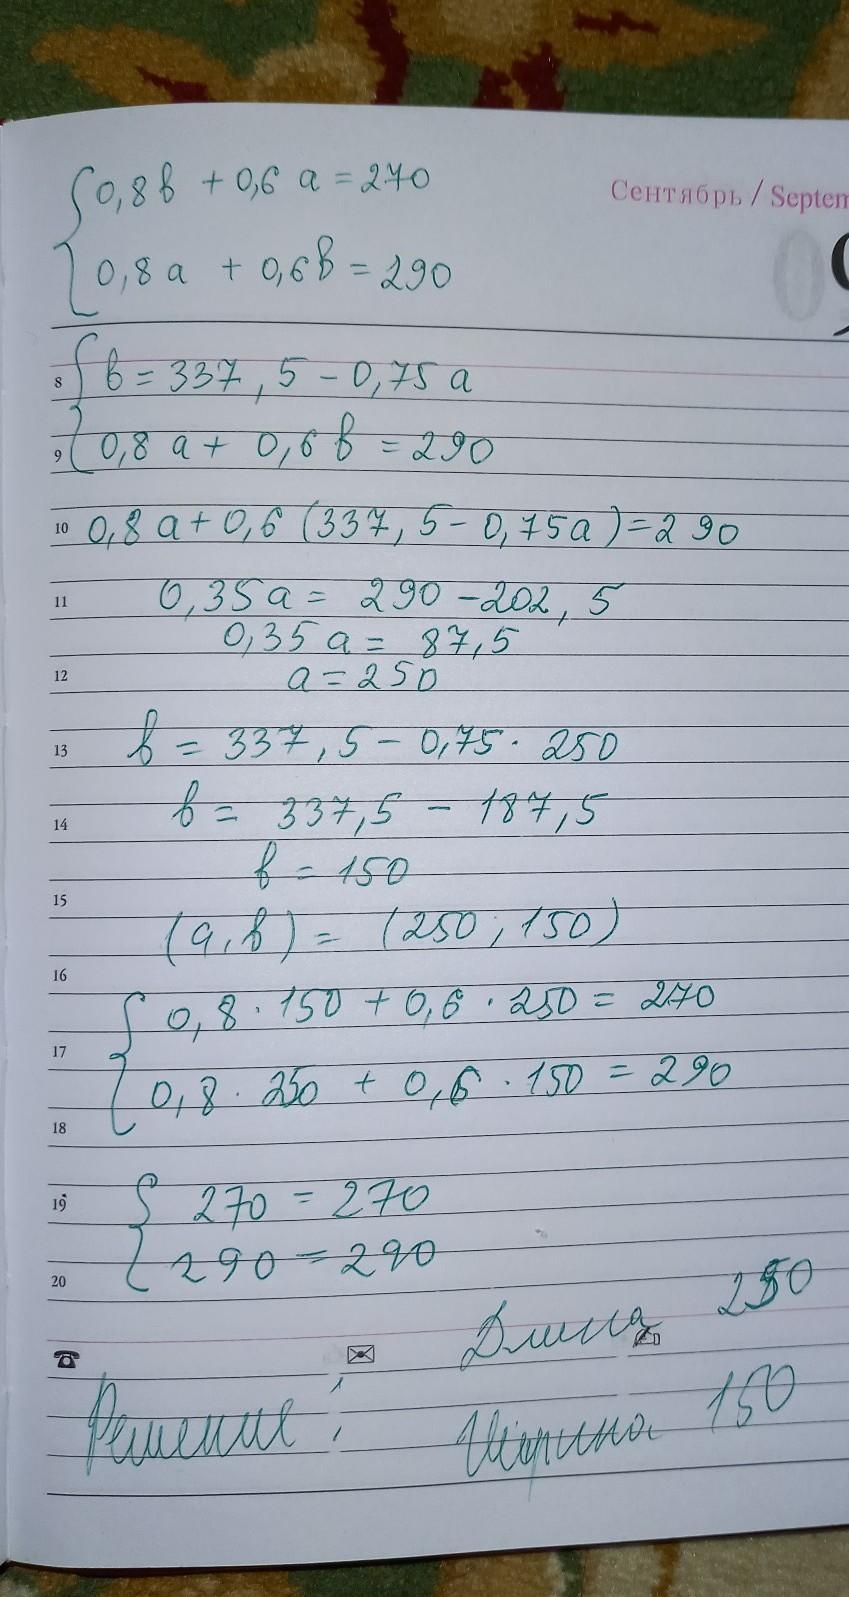 0,8b + 0,6 a = 270
Сентябрь / Septem
0,8a + 0,6b = 290
09
8 b = 337,5 - 0,75 a
9 0,8 a + 0,6 b = 290
10 0,8 a + 0,6 (337,5 - 0,75a) = 290
11 0,35a = 290 - 202,5
0,35 a = 87,5
12 a = 250
13 b = 337,5 - 0,75 · 250
14 b = 337,5 - 187,5
b = 150
15
(a, b) = (250; 150)
16
0,8 · 150 + 0,6 · 250 = 270
17
0,8 · 250 + 0,6 · 150 = 290
18
19 270 = 270
20 290 = 290
Длина 250
Решение: Ширина 150